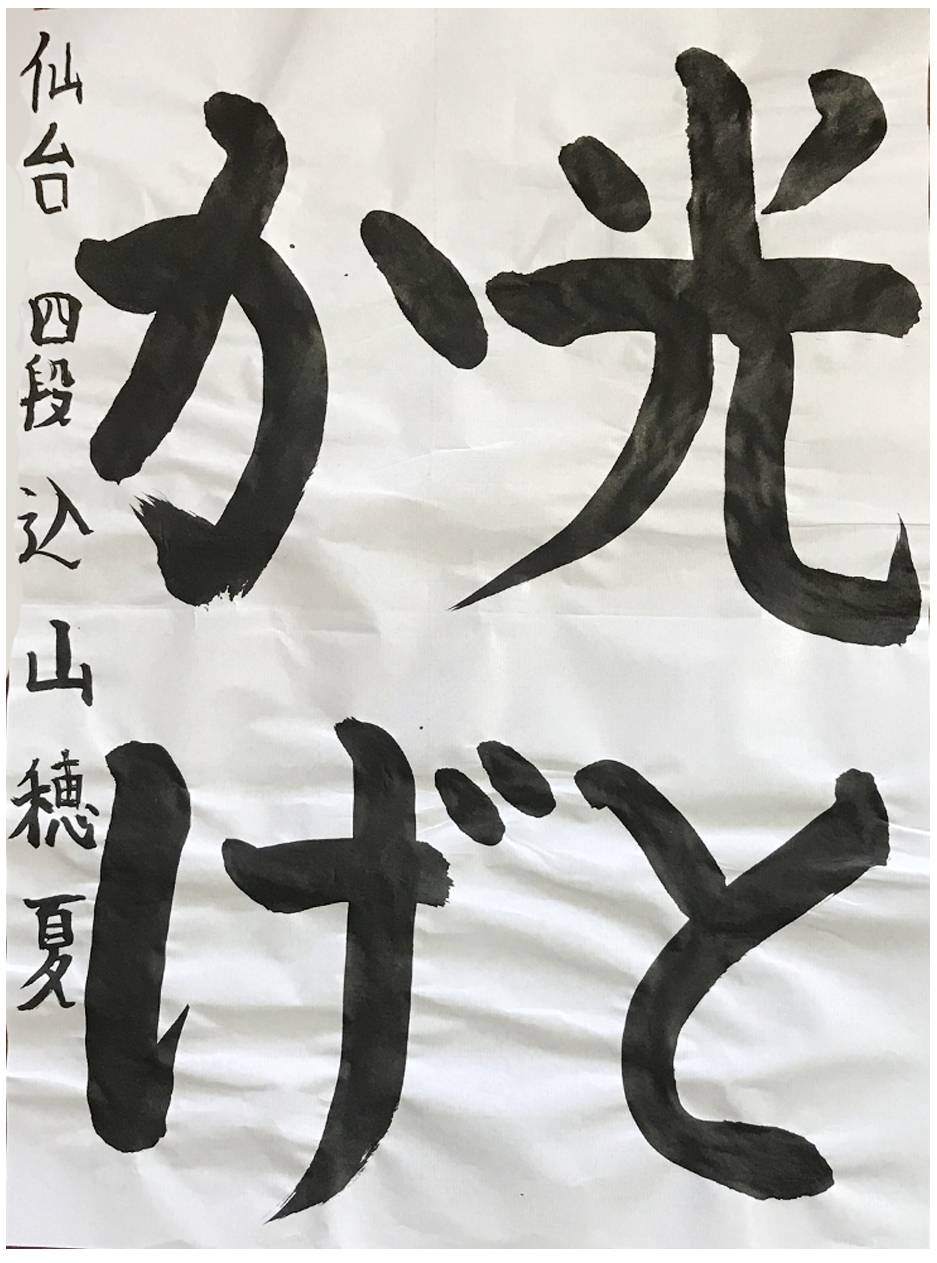 光と
かげ
仙台 四段 込山穂夏